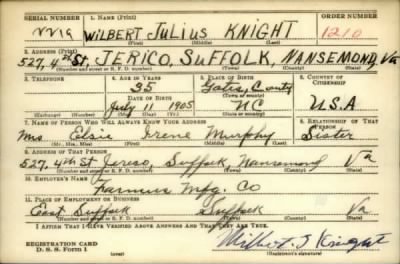 SERIAL NUMBER 1. NAME (Print) ORDER NUMBER
WILBERT JULIUS KNIGHT 1210
(First) (Middle) (Last)
2. ADDRESS (Print)
527, 4th St. JERICO, SUFFOLK, NANSEMOND, Va
(Number and street or R. F. D. number) (Town) (County) (State)
3. TELEPHONE 4. AGE IN YEARS 5. PLACE OF BIRTH 6. COUNTRY OF CITIZENSHIP
35 Gates, County
DATE OF BIRTH (Town or county)
July 11 1905 NC U.S.A
(Exchange) (Number) (Mo.) (Day) (Yr.) (State or country)
7. NAME OF PERSON WHO WILL ALWAYS KNOW YOUR ADDRESS 8. RELATIONSHIP OF THAT PERSON
Mrs Elsie Irene Murphy Sister
(Mr., Mrs., Miss) (First) (Middle) (Last)
9. ADDRESS OF THAT PERSON
527, 4th St Jerico, Suffolk, Nansemond Va
(Number and street or R. F. D. number) (Town) (County) (State)
10. EMPLOYER'S NAME
Mfg. Co
11. PLACE OF EMPLOYMENT OR BUSINESS
East Suffolk Suffolk Va
(Number and street or R. F. D. number) (Town) (County) (State)
I AFFIRM THAT I HAVE VERIFIED ABOVE ANSWERS AND THAT THEY ARE TRUE.
REGISTRATION CARD
D. S. S. Form 1 (over)
Wilbert J Knight
(Registrant's signature)